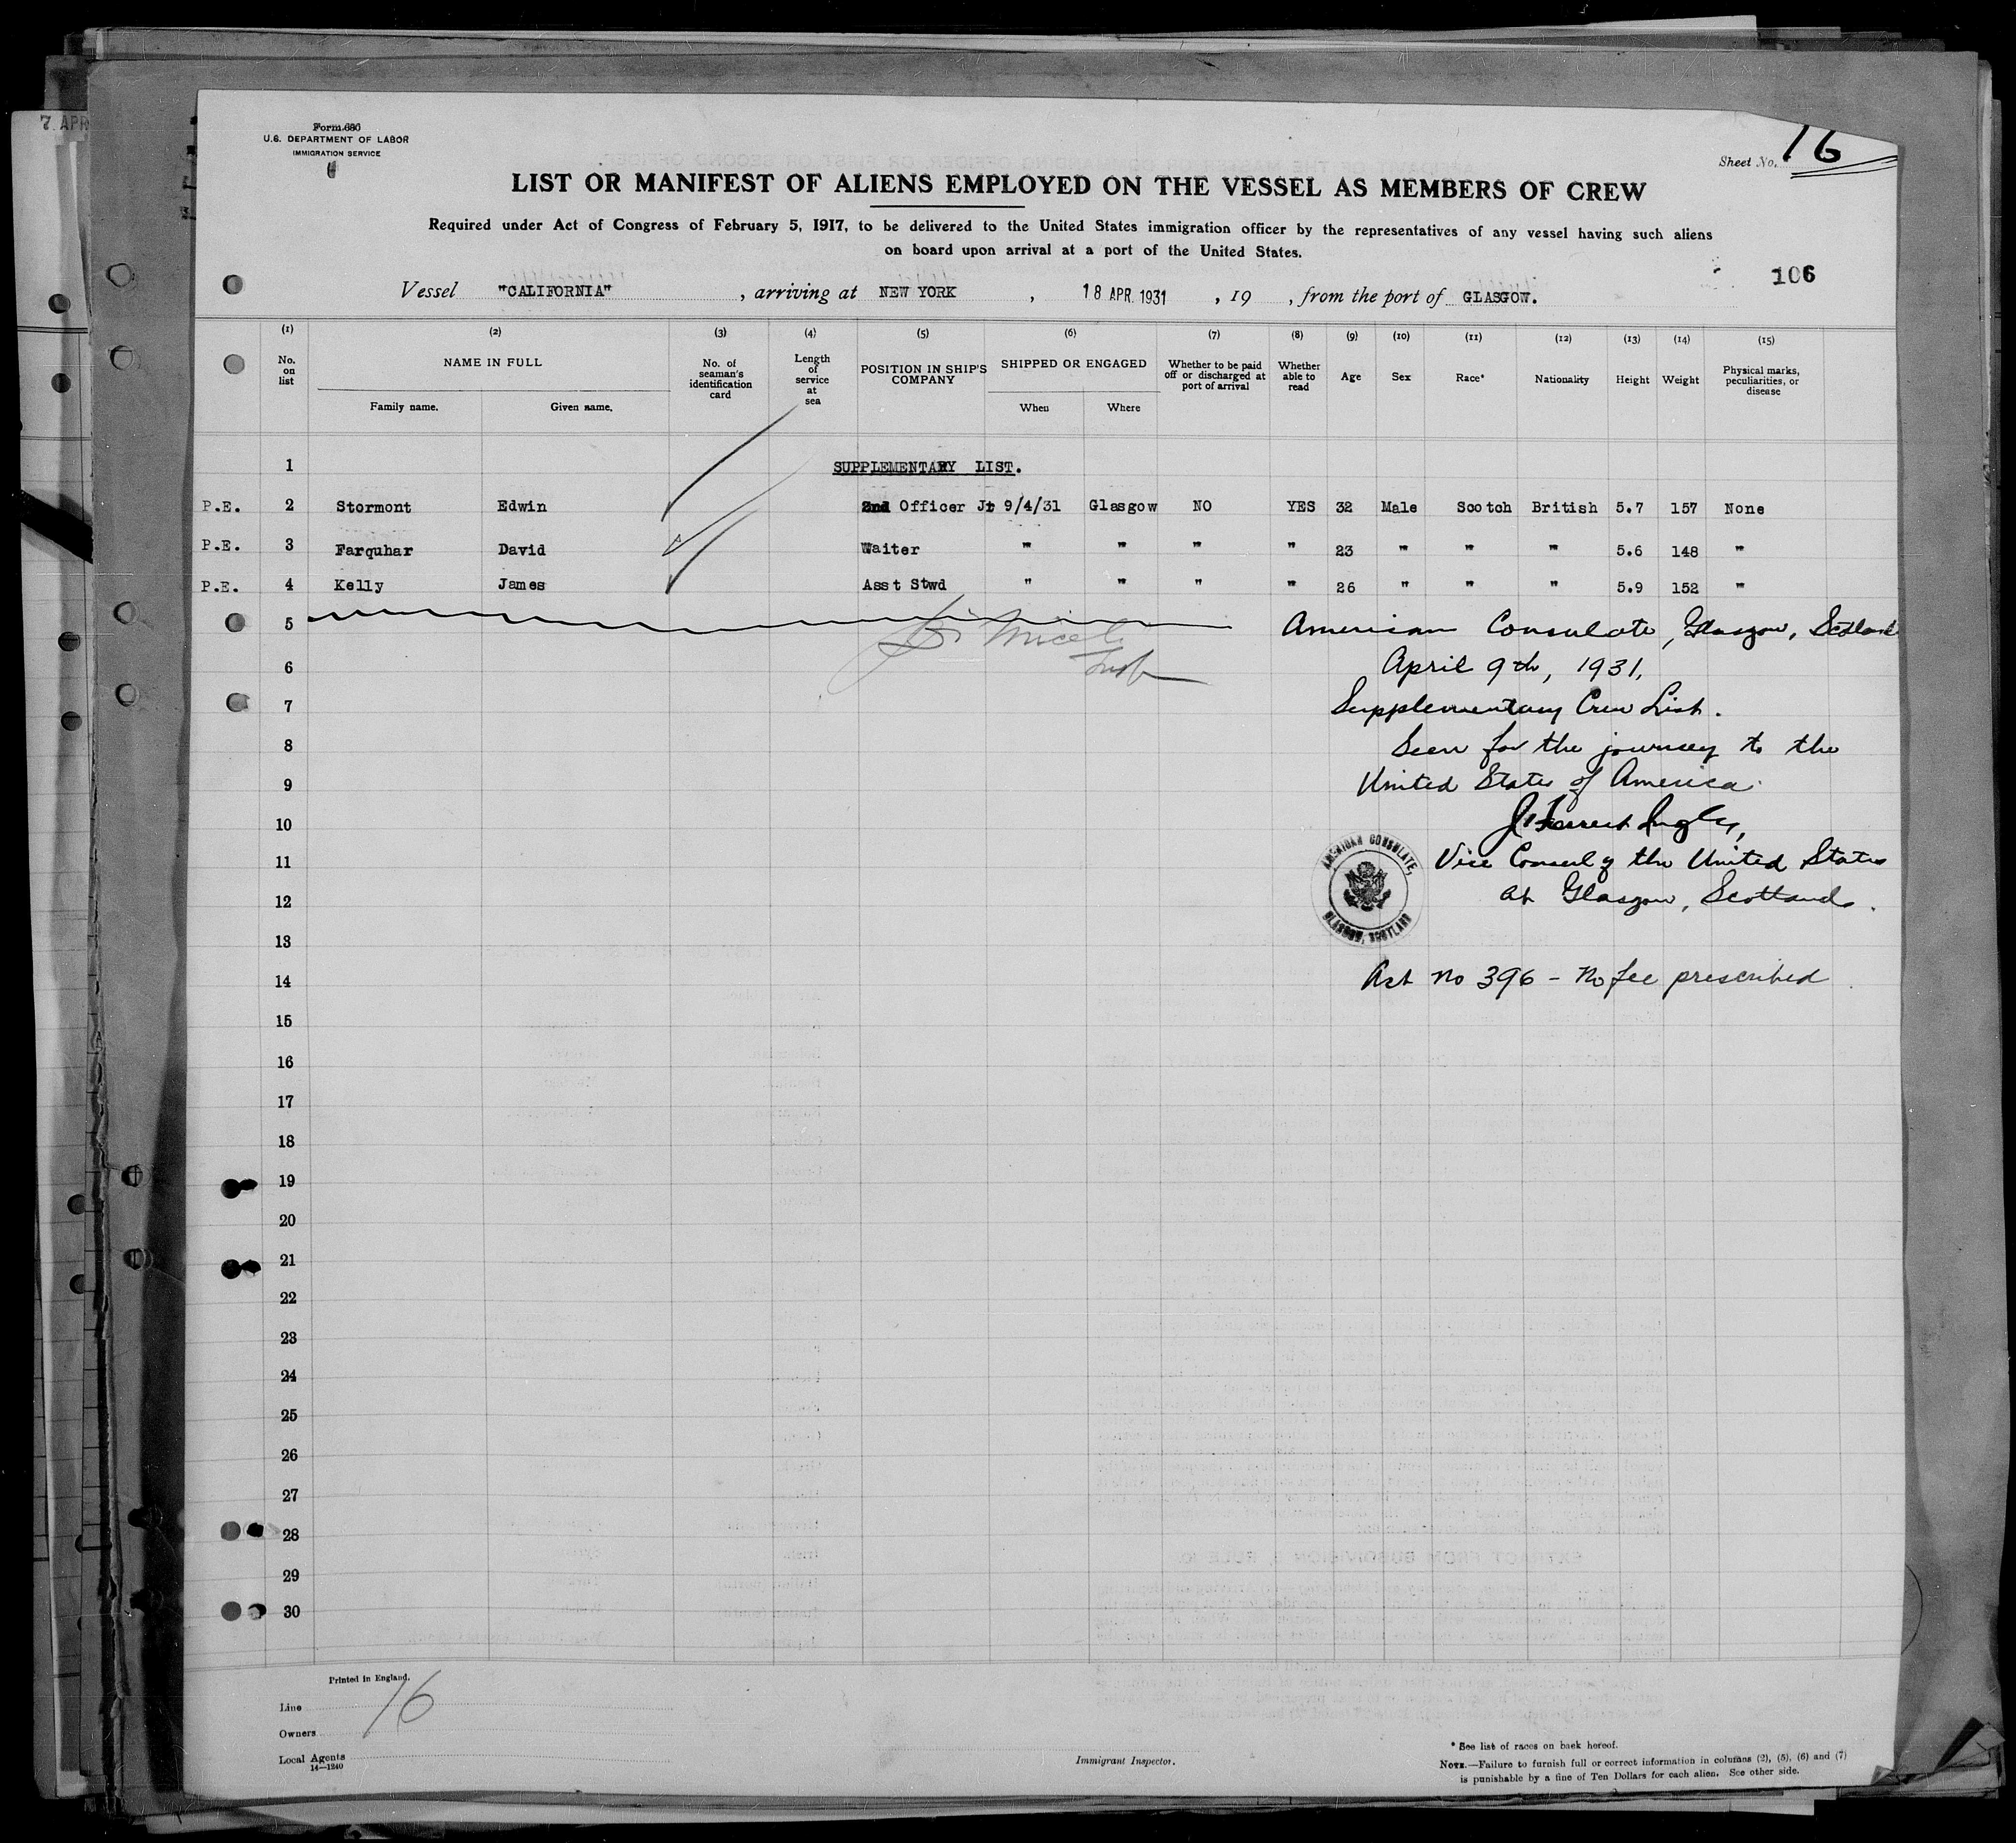 7 APR
Form 680
U.S. DEPARTMENT OF LABOR
IMMIGRATION SERVICE
Sheet No. 16
LIST OR MANIFEST OF ALIENS EMPLOYED ON THE VESSEL AS MEMBERS OF CREW
Required under Act of Congress of February 5, 1917, to be delivered to the United States immigration officer by the representatives of any vessel having such aliens
on board upon arrival at a port of the United States.
106
Vessel "CALIFORNIA", arriving at NEW YORK, 18 APR. 1931, 19 , from the port of GLASGOW.
(1) (2) (3) (4) (5) (6) (7) (8) (9) (10) (11) (12) (13) (14) (15)
No. on list NAME IN FULL Family name. Given name. No. of seaman's identification card Length of service at sea POSITION IN SHIP'S COMPANY SHIPPED OR ENGAGED When Where Whether to be paid off or discharged at port of arrival Whether able to read Age Sex Race* Nationality Height Weight Physical marks, peculiarities, or disease
1 SUPPLEMENTARY LIST.
P.E. 2 Stormont Edwin 2nd Officer Jr 9/4/31 Glasgow NO YES 32 Male Scotch British 5.7 157 None
P.E. 3 Farquhar David Waiter " " " " 23 " " " 5.6 148 "
P.E. 4 Kelly James Asst Stwd " " " " 26 " " " 5.9 152 "
5 American Consulate, Glasgow, Scotland
6 April 9th, 1931.
7 Supplementary Crew List.
8 Seen for the journey to the
9 United States of America.
10
11 Vice Consul of the United States
12 at Glasgow, Scotland.
AMERICAN CONSULATE, GLASGOW, SCOTLAND
13
14 Act no 396 - No fee prescribed
15
16
17
18
19
20
21
22
23
24
25
26
27
28
29
30
Printed in England.
16
Line
Owners
Local Agents
14—1240
Immigrant Inspector.
* See list of races on back hereof.
NOTE.—Failure to furnish full or correct information in columns (2), (5), (6) and (7)
is punishable by a fine of Ten Dollars for each alien. See other side.